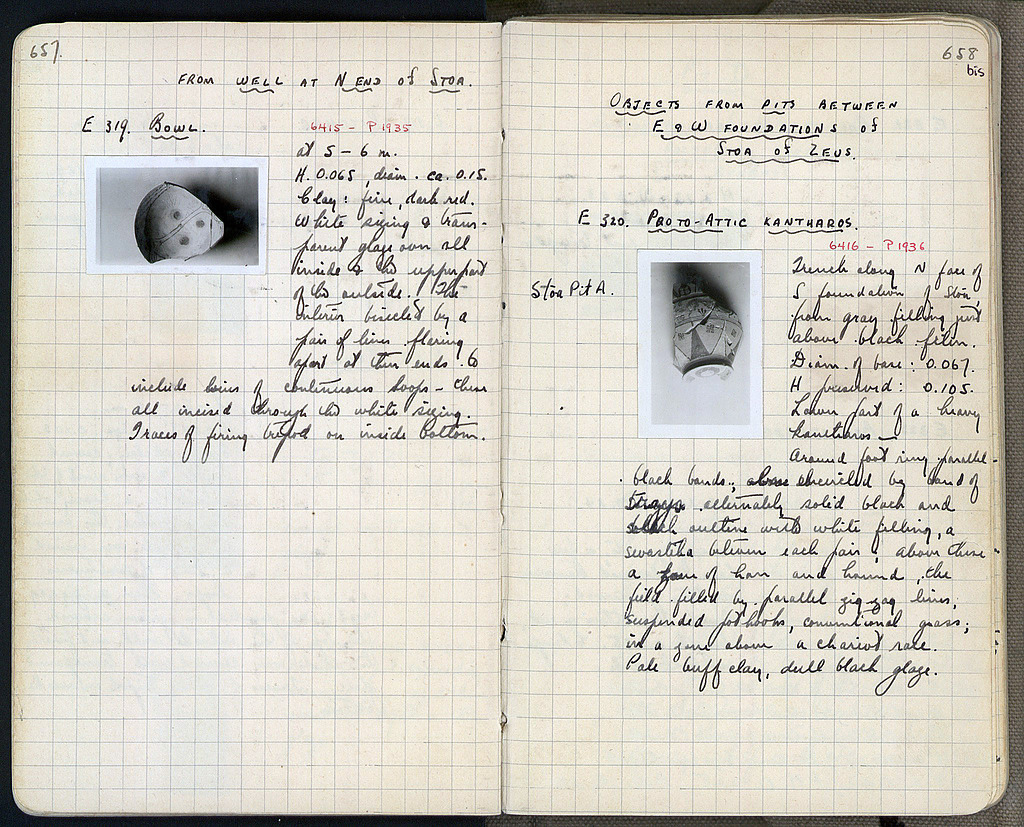 657.
FROM WELL AT N END of STOA.
E 319. BOWL.
6415 - P 1935
at 5 - 6 m.
H. 0.065, diam. ca. 0.15.
Clay: fine, dark red.
White sizing & trans-
parent glaze over all
inside & the upper part
of the outside. The
interior bisected by a
pair of lines flaring
apart at their ends to
include lines of continuous loops - these
all incised through the white sizing.
Traces of firing tripod on inside bottom.
658
bis
OBJECTS FROM PITS BETWEEN
E & W FOUNDATIONS of
STOA of ZEUS.
E 320. PROTO-ATTIC KANTHAROS.
6416 - P 1936
Stoa Pit A.
Trench along N face of
S foundation of Stoa,
from gray filling just
above black filling.
Diam. of base: 0.067.
H preserved: 0.105.
Lower part of a heavy
kantharos -
Around foot ring parallel
black bands; encircled by band of
alternately solid black and
outline with white filling, a
swastika between each pair; above these
a of hare and hound, the
field filled by parallel zig-zag lines,
suspended pothooks, conventional grass;
in a zone above a chariot race.
Pale buff clay, dull black glaze.